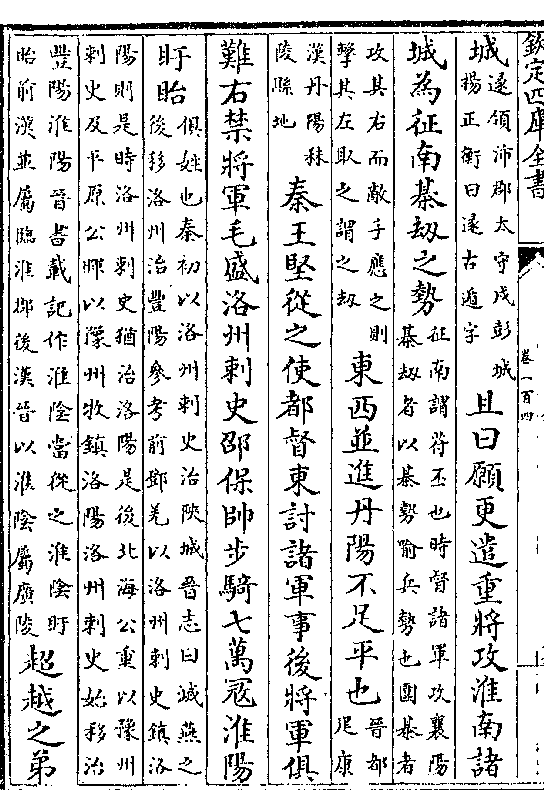 欽定四庫全書
卷一百四
城遂領沛郡太守戍彭城楊正衡曰遂古遁字且曰願更遣重將攻淮南諸
城為征南棊劫之勢征南謂苻丕也時督諸軍攻襄陽棊劫者以棊勢喻兵勢也圍棊者
攻其右而敵手應之則擊其左取之謂之劫東西並進丹陽不足平也晉都建康
漢丹陽秣陵縣地秦王堅從之使都督東討諸軍事後將軍俱
難右禁將軍毛盛洛州刺史邵保帥步騎七萬寇淮陽
盱眙俱姓也秦初以洛州刺史治陜城晉志曰滅燕之後移洛州治豐陽參考前鄧羌以洛州刺史鎮洛
陽則是時洛州刺史猶治洛陽是後北海公重以豫州刺史及平原公暉以豫州牧鎮洛陽洛州刺史始移治
豐陽淮陽晉書載記作淮陰當從之淮陰盱眙前漢並屬臨淮郡後漢晉以淮陰屬廣陵超越之弟